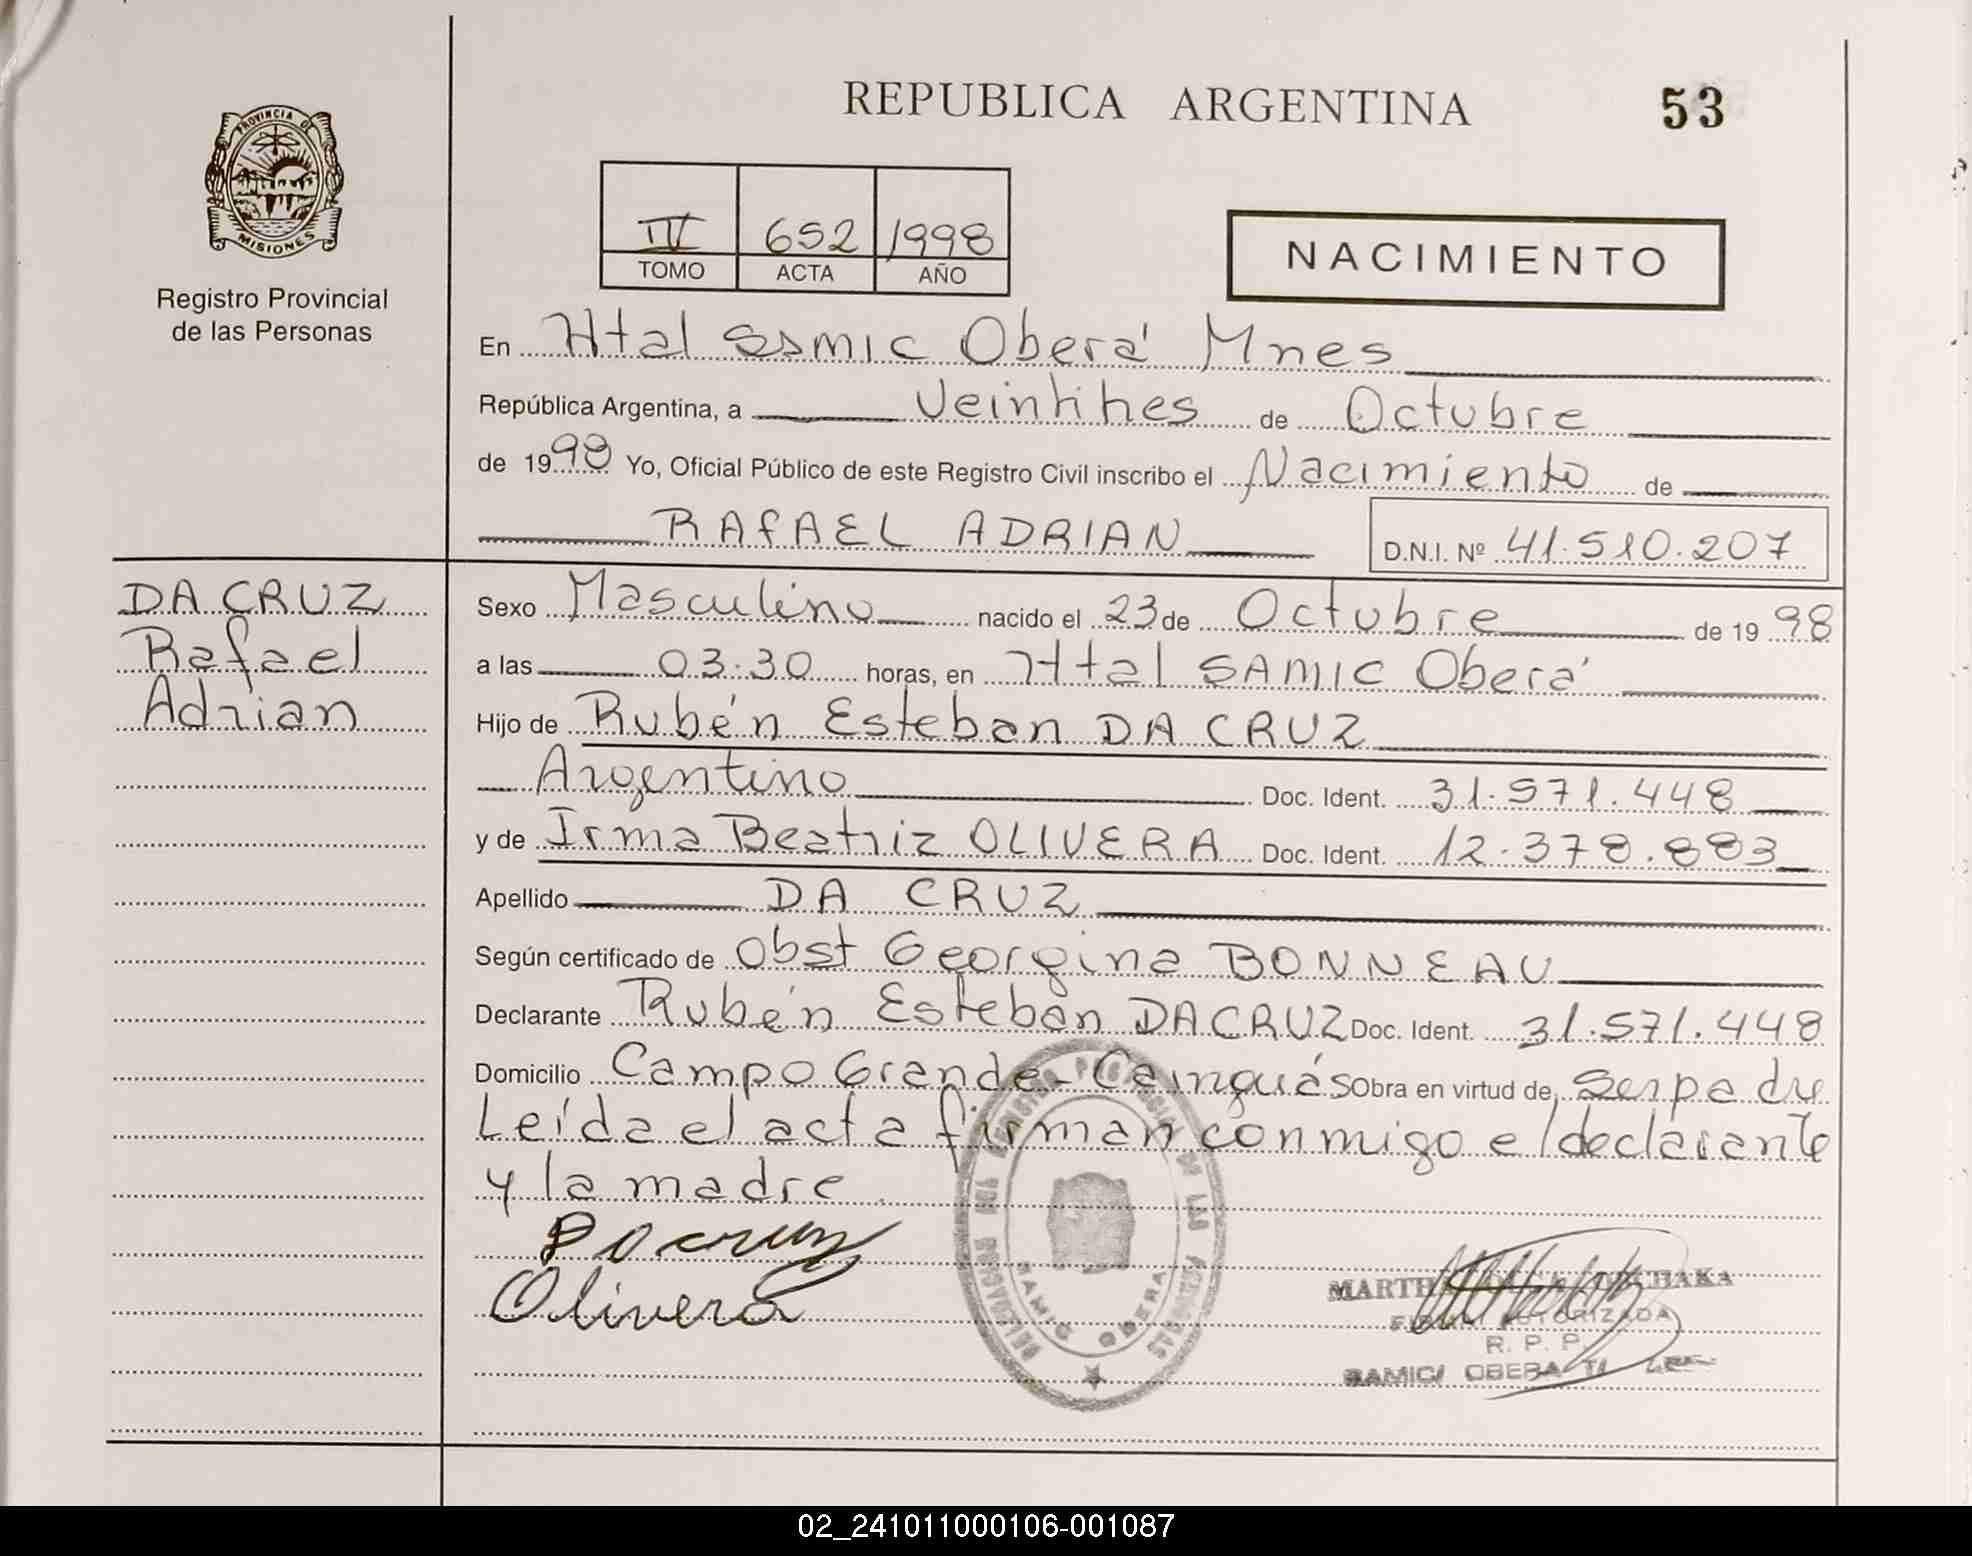 REPUBLICA ARGENTINA
53
PROVINCIA DE
MISIONES
Registro Provincial
de las Personas
IV 652 1998
TOMO ACTA AÑO
NACIMIENTO
En Htal SSMIC Oberá Mnes
República Argentina, a Veintitres de Octubre
de 1998 Yo, Oficial Público de este Registro Civil inscribo el Nacimiento de
RAFAEL ADRIAN D.N.I. Nº 41.510.207
DA CRUZ
Rafael
Adrian
Sexo Masculino nacido el 23 de Octubre de 1998
a las 03:30 horas, en Htal SAMIC Oberá
Hijo de Rubén Esteban DA CRUZ
Argentino Doc. Ident. 31.571.448
y de Irma Beatriz OLIVERA Doc. Ident. 12.378.883
Apellido DA CRUZ
Según certificado de Obst Georgina BONNEAU
Declarante Rubén Esteban DA CRUZ Doc. Ident. 31.571.448
Domicilio Campo Grande - Cainguás Obra en virtud de, ser padre
Leída el acta firman conmigo el declarante
y la madre.
Dacruz
Olivera
SAMIC OBERA
FIRMA AUTORIZADA
R. P. P.
SAMIC/ OBERA
02_241011000106-001087